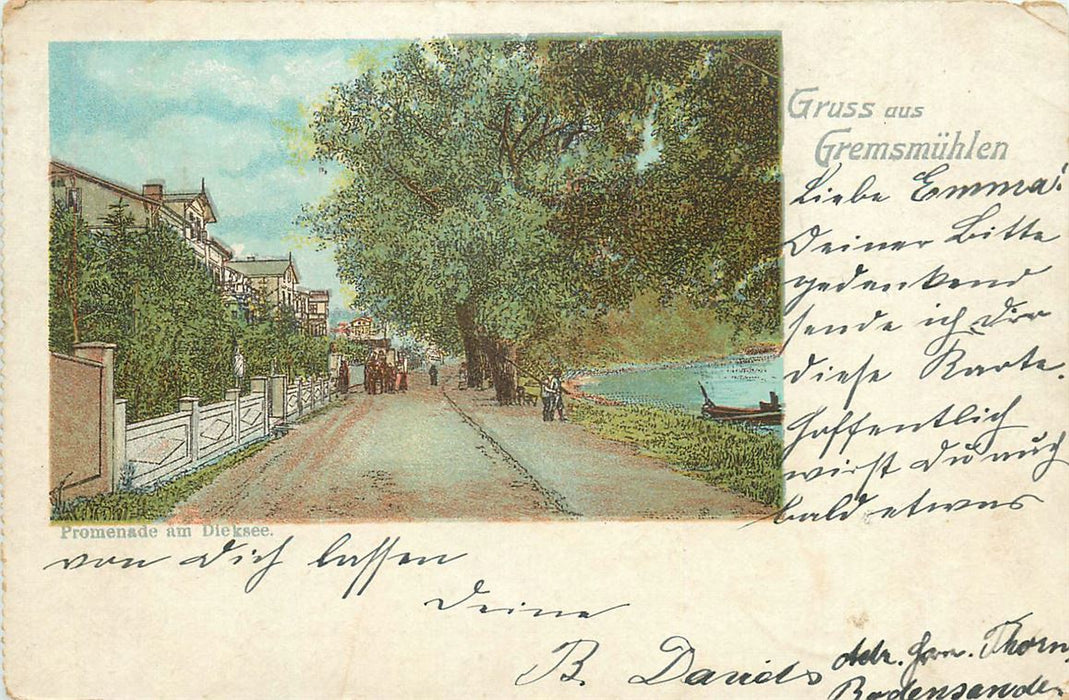 Gruss aus
Gremsmühlen
Liebe Emma!
Deiner Bitte
gedenkend
sende ich Dir
diese Karte.
Hoffentlich
wirst Du auch
bald etwas
Promenade am Dieksee.
von Dich hören lassen
Deine
B. Davids
Adr. Frn. Thorn,